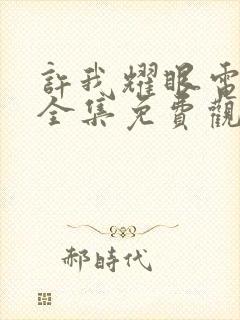 許我耀眼電
全集免費觀
郝時代